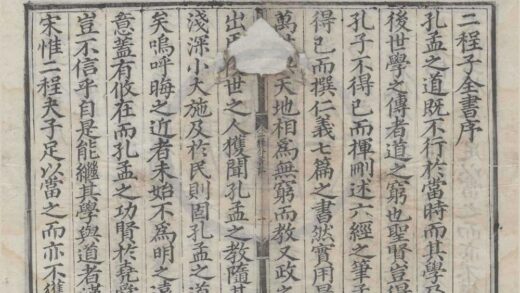 二程子全書序
孔孟之道既不行於當時而其學及
後世學之傳者道之窮也聖賢豈得
孔子不得已而揮刪述六經之筆孟
得已而撰仁義七篇之書然實用是
萬天地相爲無窮而教又政之
出世之人獲聞孔孟之教隨其
淺深小大施及於民則固孔孟之道
矣嗚呼晦之近者未始不爲明之遠
意蓋有攸在而孔孟之功賢於堯舜
豈不信乎自是能繼其學與道者
宋惟二程夫子足以當之而亦不獲